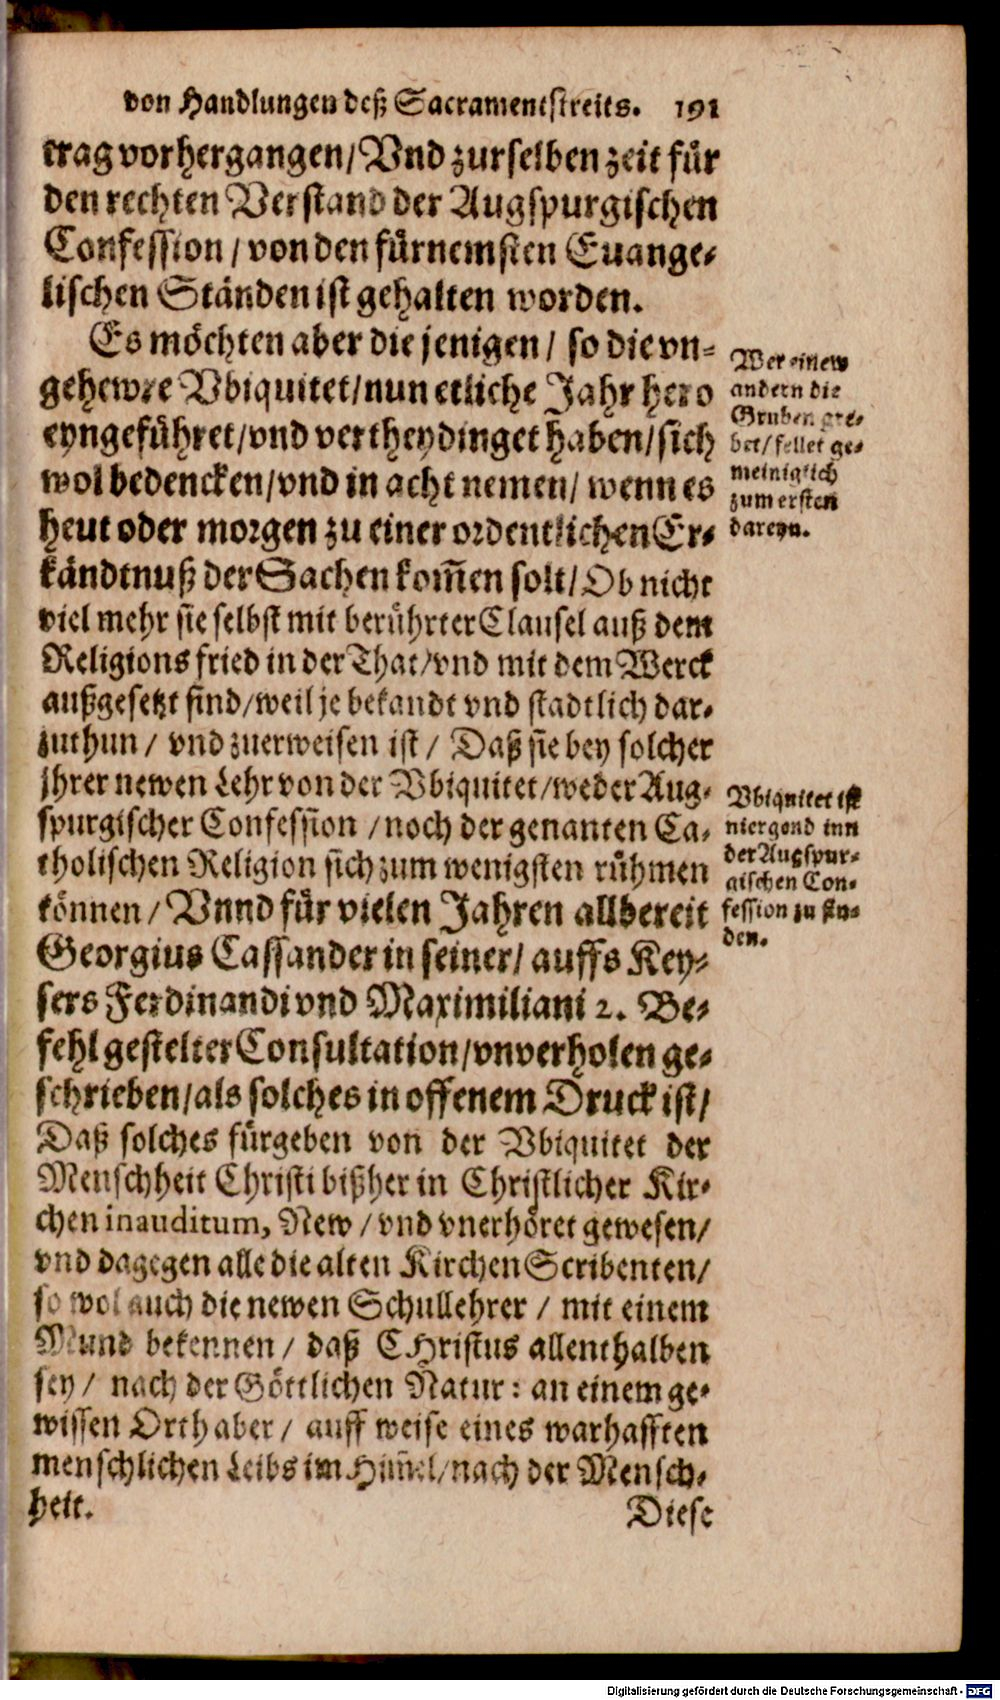 von Handlungen deß Sacramentstreits. 191
trag vorhergangen/ Vnd zur selben zeit für
den rechten Verstand der Augspurgischen
Confession / von den fürnemsten Euange-
lischen Ständen ist gehalten worden.
Es möchten aber die jenigen / so die vn-
gehewre Vbiquitet/ nun etliche Jahr hero
eyngeführet/ vnd vertheydinget haben/ sich
wol bedencken/ vnd in acht nemen/ wenn es
heut oder morgen zu einer ordentlichen Er-
kändtnuß der Sachen kom̃en solt/ Ob nicht
viel mehr sie selbst mit berührter Clausel auß dem
Religions fried in der That/ vnd mit dem Werck
außgesetzt sind/ weil je bekandt vnd stadtlich dar-
zuthun / vnd zuerweisen ist / Daß sie bey solcher
jhrer newen Lehr von der Vbiquitet/ weder Aug-
spurgischer Confession / noch der genanten Ca-
tholischen Religion sich zum wenigsten rühmen
können / Vnnd für vielen Jahren allbereit
Georgius Cassander in seiner/ auffs Key-
sers Ferdinandi vnd Maximiliani 2. Be-
fehl gestelter Consultation/ vnverholen ge-
schrieben/ als solches in offenem Druck ist/
Daß solches fürgeben von der Vbiquitet der
Menschheit Christi bißher in Christlicher Kir-
chen inauditum, New / vnd vnerhöret gewesen/
vnd dagegen alle die alten Kirchen Scribenten/
so wol auch die newen Schullehrer / mit einem
Mund bekennen / daß CHristus allenthalben
sey / nach der Göttlichen Natur: an einem ge-
wissen Orth aber / auff weise eines warhafften
menschlichen Leibs im Him̃el/ nach der Mensch-
heit.
Diese
Wer einem
andern die
Gruben gre-
bet/ fellet ge-
meiniglich
zum ersten
dareyn.
Vbiquitet ist
niergend inn
der Augspur-
gischen Con-
fession zu fin-
den.
Digitalisierung gefördert durch die Deutsche Forschungsgemeinschaft - DFG